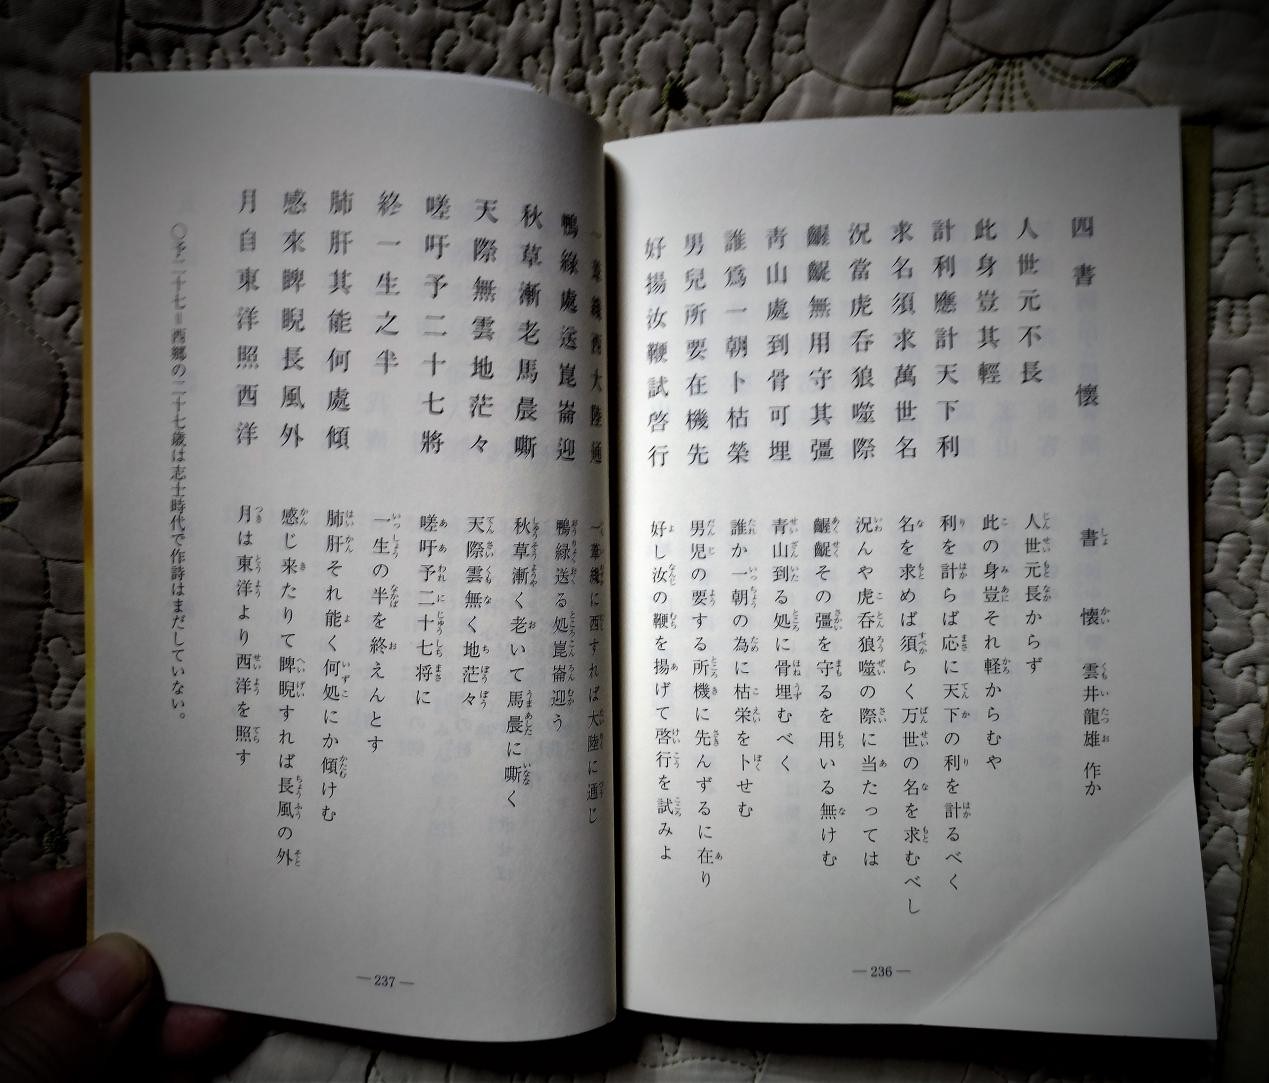 四　書　懷
人世元不長
此身豈其輕
計利應計天下利
求名須求萬世名
況當虎呑狼噬際
齷齪無用守其彊
青山處到骨可埋
誰爲一朝卜枯榮
男兒所要在機先
好揚汝鞭試啓行
書　懐　雲井龍雄 作か
人世元長からず
此の身豈それ軽からむや
利を計らば応に天下の利を計るべく
名を求めば須らく万世の名を求むべし
況んや虎呑狼噬の際に当たっては
齷齪その彊を守るを用いる無けむ
青山到る処に骨埋むべく
誰か一朝の為に枯栄を卜せむ
男児の要する所機に先んずるに在り
好し汝の鞭を揚げて啓行を試みよ
—236—
一葦纔西大陸通
鴨綠處送崑崙迎
秋草漸老馬晨嘶
天際無雲地茫々
嗟吁予二十七將
終一生之半
肺肝其能何處傾
感來睥睨長風外
月自東洋照西洋
一葦纔に西すれば大陸に通じ
鴨緑送る処崑崙迎う
秋草漸く老いて馬晨に嘶く
天際雲無く地茫々
嗟吁予二十七将に
一生の半を終えんとす
肺肝それ能く何処にか傾けむ
感じ来たりて睥睨すれば長風の外
月は東洋より西洋を照す
〇予二十七＝西郷の二十七歳は志士時代で作詩はまだしていない。
—237—